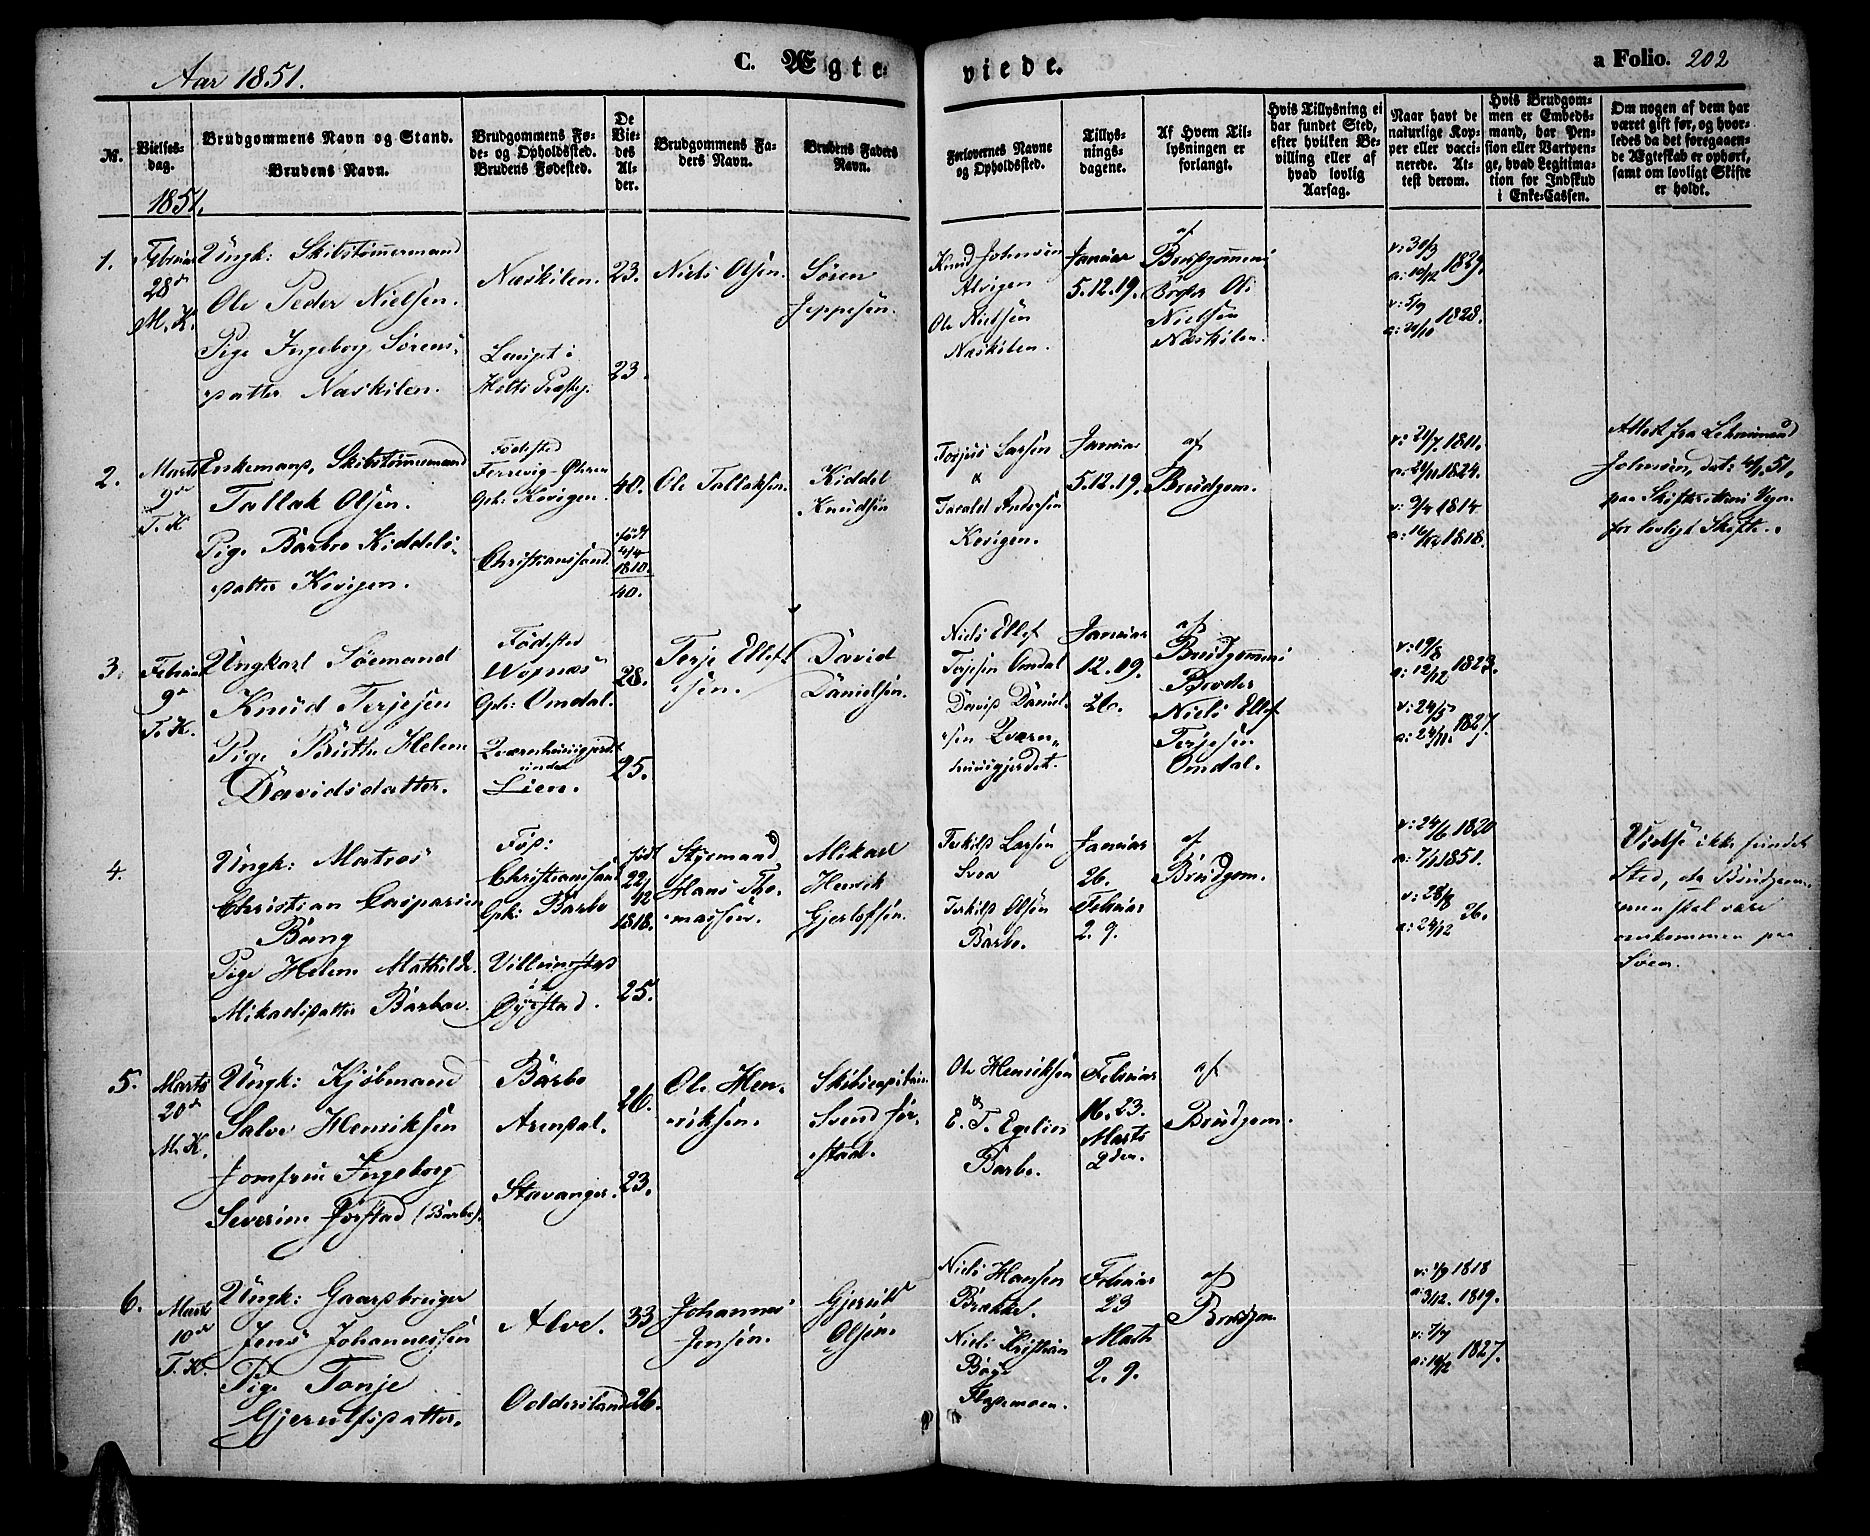 Aar 1851.
C. Ægte viede.
a Folio. 202
№.
Vielses-
dag.
Brudgommens Navn og Stand.
Brudens Navn.
Brudgommens Fø-
de- og Opholdssted.
Brudens Fødested.
De
Vie-
des
Al-
der.
Brudgommens Fa-
ders Navn.
Brudens Faders
Navn.
Forlovernes Navne
og Opholdssted.
Tillys-
nings-
dagene.
Af Hvem Til-
lysningen er
forlangt.
Hvis Tillysning ei
har fundet Sted,
efter hvilken Be-
villing eller af
hvad lovlig
Aarsag.
Naar havt de
naturlige Kop-
per eller vacci-
nerede. At-
test derom.
Hvis Brudgom-
men er Embeds-
mand, har Pen-
sion eller Vartpen-
ge, hvad Legitima-
tion for Indskud
i Enke-Cassen.
Om nogen af dem har
været gift før, og hvor-
ledes da det foregaaen-
de Ægteskab er ophørt,
samt om lovligt Skifte
er holdt.
1851.
1.
Februar
28de
M. K.
Ungk: Skibstømmermand
Ole Peder Nielsen.
Pige Ingeborg Sørens-
datter Næskilen.
Næskilen.
23.
23.
Niels Olsen.
Søren
Jeppesen.
Knud Johnsen
Alvigen
Ole Nielsen
Næskilen.
Januar
5. 12. 19.
af
Ole
Nielsen
Næskilen.
v: 30/3
a: 10/12 1829.
v: 5/9
a: 20/10 1828.
2.
Marts
9de
T. K
Enkemand, Skibstømmermand
Tallak Olsen.
Pige Barbro Kiddels-
datter Kovigen.
Fødested
Terrevig
Oph: Kovigen.
Christianssand.
40.
født
4/4
1810.
40.
Ole Tallaksen.
Kiddel
Knudsen
Torjus Larsen
&
Tarald Andersen
Kovigen.
Januar
5. 12. 19.
af
Brudgom.
v: 21/7 1811.
a: 21/11 1824.
v: 9/4 1814
a: 16/12 1818.
Attest fra Lehnsmand
Johnsen, dat: 4/1 51,
paa Skifterettens Vegne
for lovligt Skifte.
3.
Februar
9de
T. K.
Ungkarl Søemand
Knud Terjesen
Pige Birthe Helene
Davidsdatter.
Fødested
Oph: Omdal.
under
Lien.
28.
25.
Terje Ellef-
sen.
David
Danielsen.
Niels Ellef
Terjesen Omdal
David Daniel-
sen Qværn-
huusgjerdet.
Januar
12. 19.
26.
af
Brudgommens
Broder
Niels Ellef
Terjesen
Omdal.
v: 19/8
a: 12/12 1823.
v: 24/5
a: 24/11 1827.
4.
Ungk: Matros
Christian Casparsen
Bang
Pige Helene Mathilde
Mikaelsdatter Barboe.
Fød:
Christianssand
Oph: Barbo
i
Øyestad.
født
22/12
1818.
25.
Styrmand
Hans Tho-
massen.
Mikael
Henrik
Gjerlofsen.
Terkild Larsen
Svea
Terkild Olsen
Barbo.
Januar
26.
Februar
2. 9.
af
Brudgom.
v: 24/6 1820
a: 7/1 1851.
v: 28/8
a: 24/12 26.
Vielse ikke fundet
Sted, da Brudgom-
men skal være
omkommen paa
Søen.
5.
Marts
20de
M. K.
Ungk: Kjøbmand
Salve Henriksen
Jomfru Ingeborg
Severine Førstad (Barbo).
Barbo
Arendal.
Stavanger.
26.
23.
Ole Hen-
riksen.
Skibscapitain
Svend Før-
stad.
Ole Henriksen
&
E. T. Egelien
Barbo.
Februar
16. 23.
Marts
2den.
af
Brudgom.
6.
Marts
10de
T. K.
Ungk: Gaardbruger
Jens Johannessen
Pige Tonje
Gjerulfsdatter.
Alve.
Oddersland
33
26.
Johannes
Jensen.
Gjerulf
Olsen.
Niels Hansen
Brække.
Niels Christian
Bøge
Flademoen.
Februar
23
Marts
2. 9.
af
Brudgom
v: 1/9 1818
a: 3/12. 1819.
v: 7/7
a: 10/12 1827.